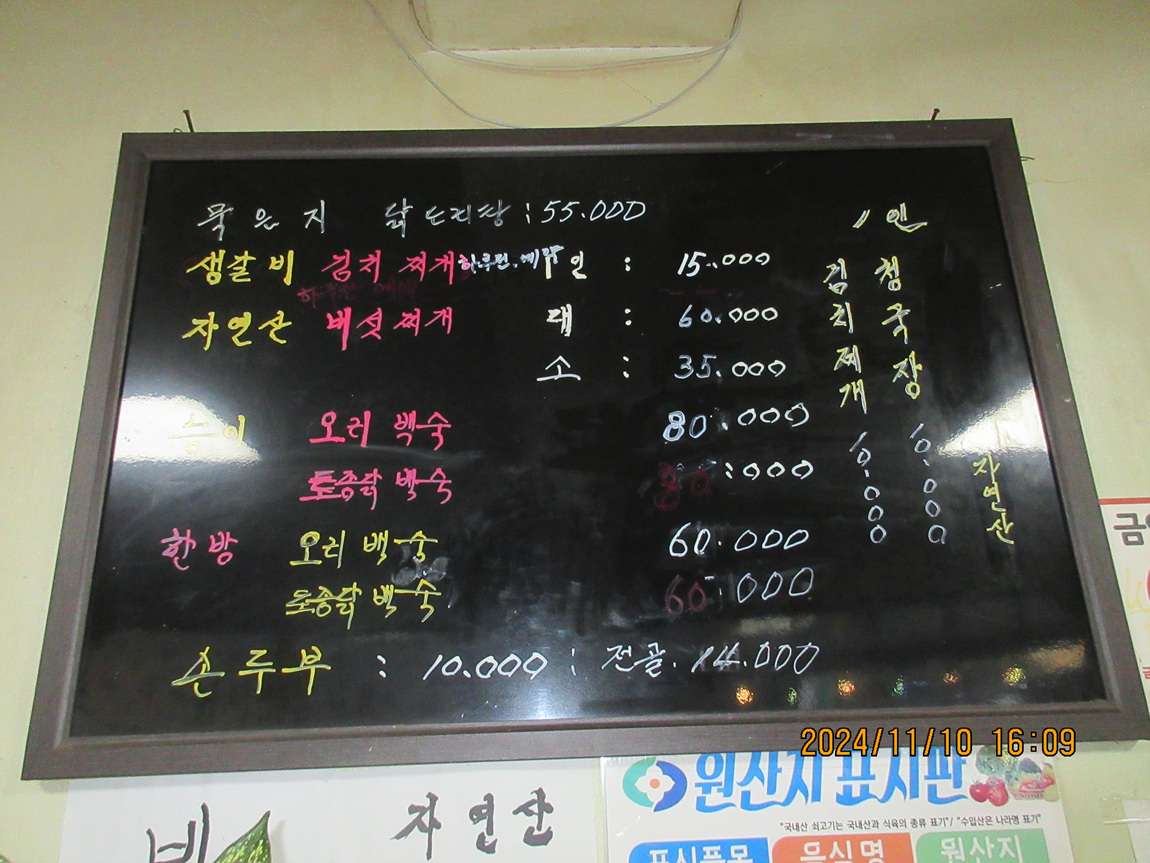 묵은지 닭도리탕 : 55.000
생갈비 김치 찌개 하루전.예약 1인 : 15.000
하루전 예약
자연산 버섯찌개 대 : 60.000
소 : 35.000
능이 오리 백숙 80.000
토종닭 백숙 80.000
한방 오리 백숙 60.000
토종닭 백숙 60.000
손두부 : 10.000 : 전골. 14.000
1인
청국장 10.000
김치찌개 10.000
자연산
2024/11/10 16:09
금
자연산
버
원산지 표시판
"국내산 쇠고기는 국내산과 식육의 종류 표기"/ "수입산은 나라명 표기"
표시품목 음식명 원산지